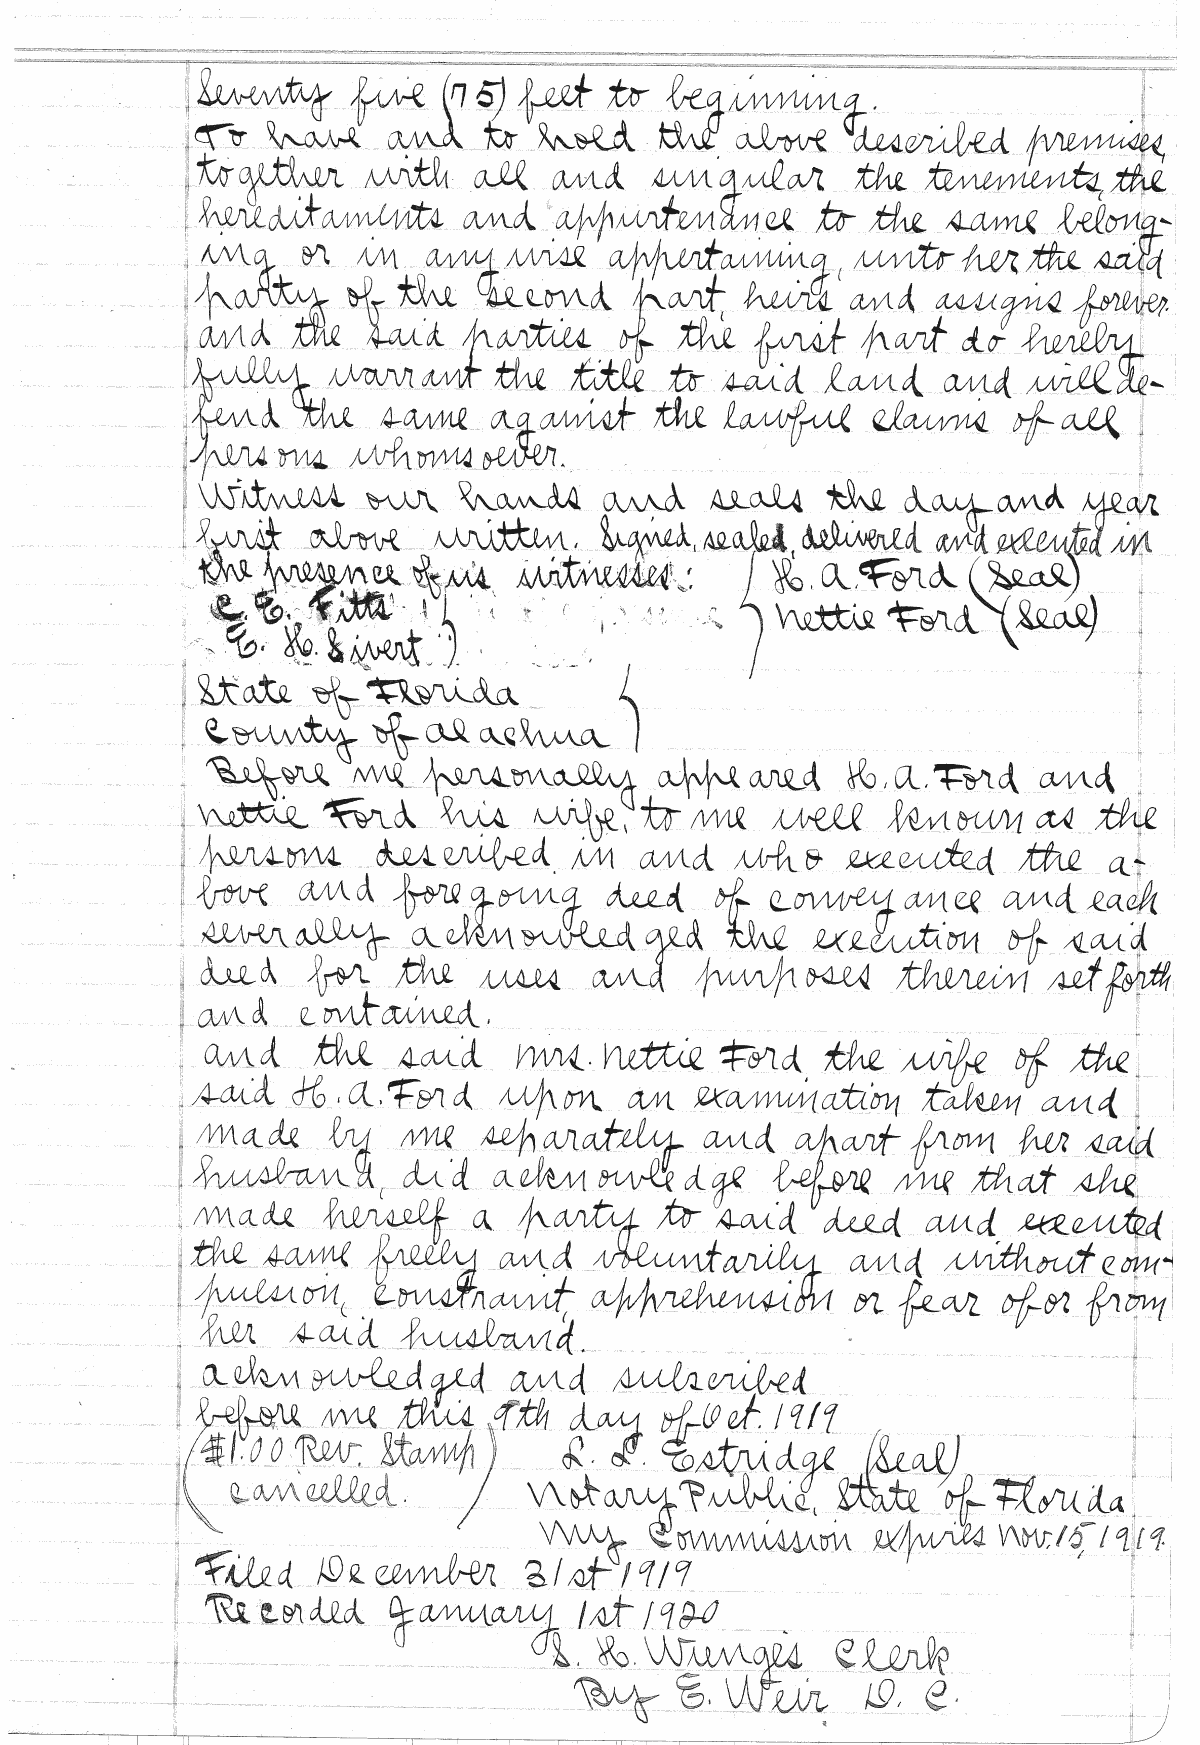 Seventy five (75) feet to beginning.
To have and to hold the above described premises,
together with all and singular the tenements, the
hereditaments and appurtenance to the same belong-
ing or in any wise appertaining, unto her the said
party of the second part, heirs and assigns forever.
and the said parties of the first part do hereby
fully warrant the title to said land and will de-
fend the same against the lawful claims of all
persons whomsoever.
Witness our hands and seals the day and year
first above written. Signed, sealed, delivered and executed in
the presence of us witnesses: H. A. Ford (Seal)
C. E. Fitts Nettie Ford (Seal)
E. H. Sivert
State of Florida
County of Alachua
Before me personally appeared H. A. Ford and
Nettie Ford his wife, to me well known as the
persons described in and who executed the a-
bove and foregoing deed of conveyance and each
severally acknowledged the execution of said
deed for the uses and purposes therein set forth
and contained.
and the said Mrs. Nettie Ford the wife of the
said H. A. Ford upon an examination taken and
made by me separately and apart from her said
husband, did acknowledge before me that she
made herself a party to said deed and executed
the same freely and voluntarily and without com-
pulsion, constraint, apprehension or fear of or from
her said husband.
acknowledged and subscribed
before me this 9th day of Oct. 1919
($1.00 Rev. Stamp L. L. Estridge (Seal)
cancelled.) Notary Public, State of Florida
My Commission expires Nov. 15, 1919.
Filed December 31st 1919
Recorded January 1st 1920
S. H. Wienges Clerk
By E. Weir D. C.